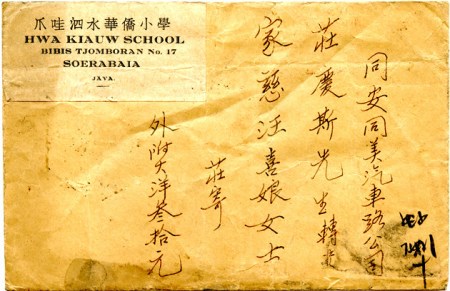 爪哇泗水華僑小學
HWA KIAUW SCHOOL
BIBIS TJOMBORAN No. 17
SOERABAIA
JAVA.
同安同美汽車路公司
莊慶斯先生轉卡
家慈汪喜娘女士
莊寄
外附大洋叁拾元